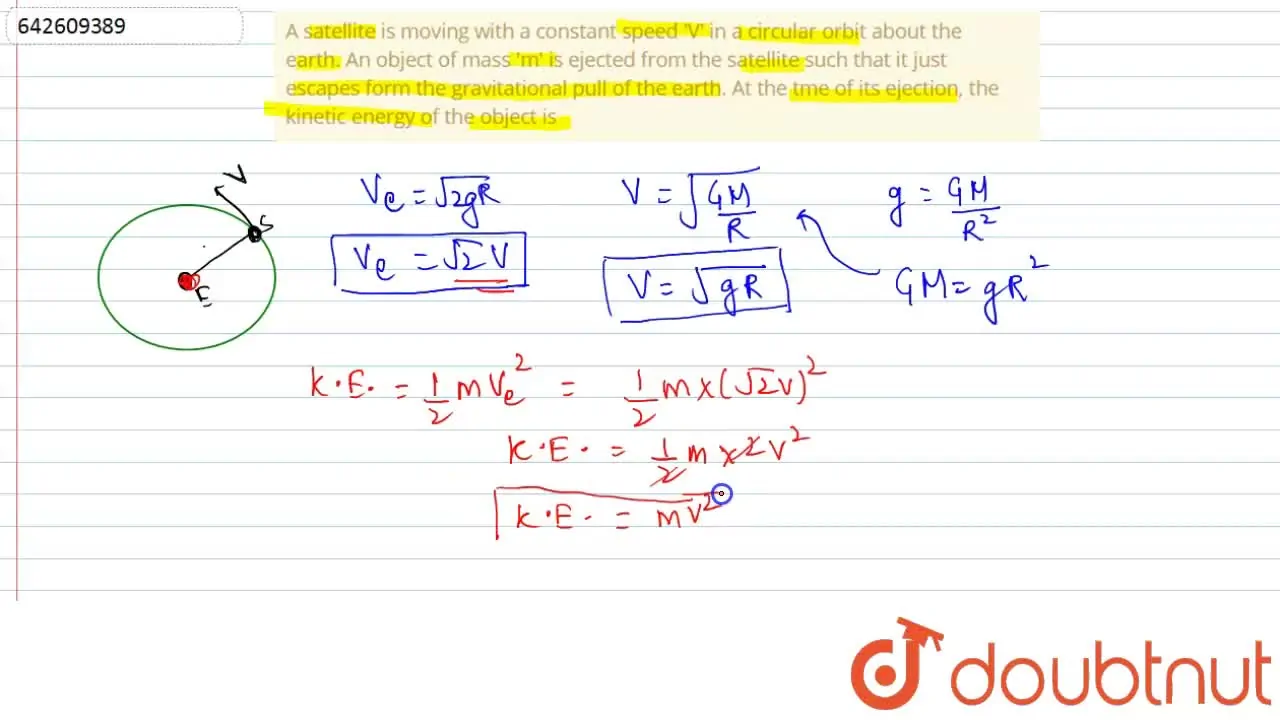 642609389
A satellite is moving with a constant speed 'V' in a circular orbit about the
earth. An object of mass 'm' is ejected from the satellite such that it just
escapes form the gravitational pull of the earth. At the tme of its ejection, the
kinetic energy of the object is
V
S
E
Ve = √2gR
Ve = √2 V
V = √GM/R
V = √gR
g = GM/R²
GM = gR²
K.E. = 1/2 m Ve² = 1/2 m x (√2 V)²
K.E. = 1/2 m x 2 V²
K.E. = mV²
doubtnut